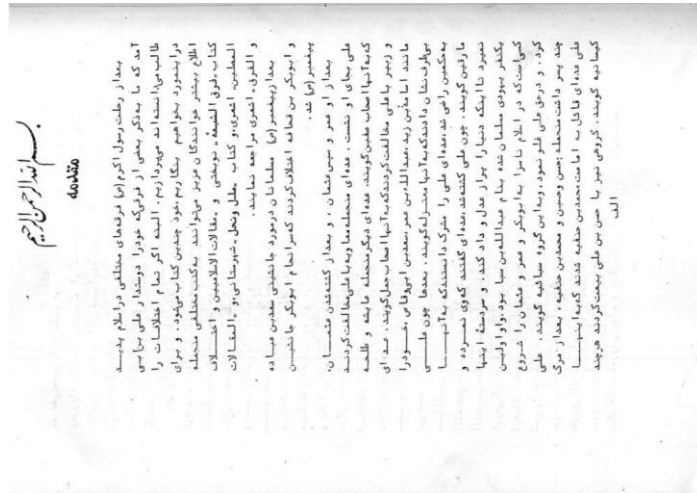 بسم الله الرحمن الرحیم
مقدمه
بعد از رحلت رسول اکرم (ص) فرقه‌های مختلفی در اسلام پدیــد
آمد که ما به‌ذکر بعضی از فرقی‌که خود را دوستدار علی بن ابی
طالب می‌دانسته‌اند می‌پردازیم. البته اگر تمام اختلافات را
در اینمورد بخواهیم بنگاریم، خود چندین کتاب میشود. و برای
اطلاع بیشتر خوانندگان عزیز می‌توانند به‌کتب مختلفی منجمله
کتاب، فرق الشیعهٔ، نوبختی و، مقالات الاسلامیین و اختــلاف
المصلین، اشعری، و کتاب، ملل و نحل، شهرستانی، و، المقالات
و الفرق، اشعری مراجعه نمایند.
بعد از پیغمبر (ص) مسلمانان در مورد جانشینی سعدبن عباده
و ابوبکر بن قحافه اختلاف کردند که سرانجام ابوبکر جانشین
پیغمبر (ص) شد.
بعد از او عمر و سپس عثمان، و بعد از کشته‌شدن عثمــان،
علی بجای او نشست. عده‌ای منجمله معاویه با علی مخالفت کردنــد
که به آنها اصحاب صفین گویند. عده‌ای دیگر منجمله عایشه و طلحــه
و زبیر با علی مخالفت کردند که به آنها اصحاب جمل گویند. عــده‌ای
مانند اسامه‌بن زید، عبدالله‌بن عمر، سعدبن ابی‌وقاص، خــود را
بی‌طرف نشان دادند که به آنها معتــزله گویند. بعدها چون علــی
به حکمین راضی شد، عده‌ای علی را مشرک دانستند که به آنهــا
مارقین گویند. چون علی کشته شد، عده‌ای گفتند که وی نمــرده و
نمیرد تا اینکه دنیا را پر از عدل و داد کند. و سردستهٔ اینها
یکنفر یهودی مسلمان شده بنام عبداللــه‌بن سبا بود، و او اولیــن
کسی‌است که در اسلام ناسزا به ابوبکر و عمر و عثمان را شــروع
کرد. و درحق علی غلو نمود، و به این گروه سبائیه گویند. علی
چند پسر داشت منجمله: حسن و حسین و محمدبن حنفیه. بعد از مرگ
علی عده‌ای قائل به امامت محمدبن حنفیه شدند که به اینهــا
کیسانیه گویند. گروهی نیز با حسن بن علی بیعت کردند هرچند
الف